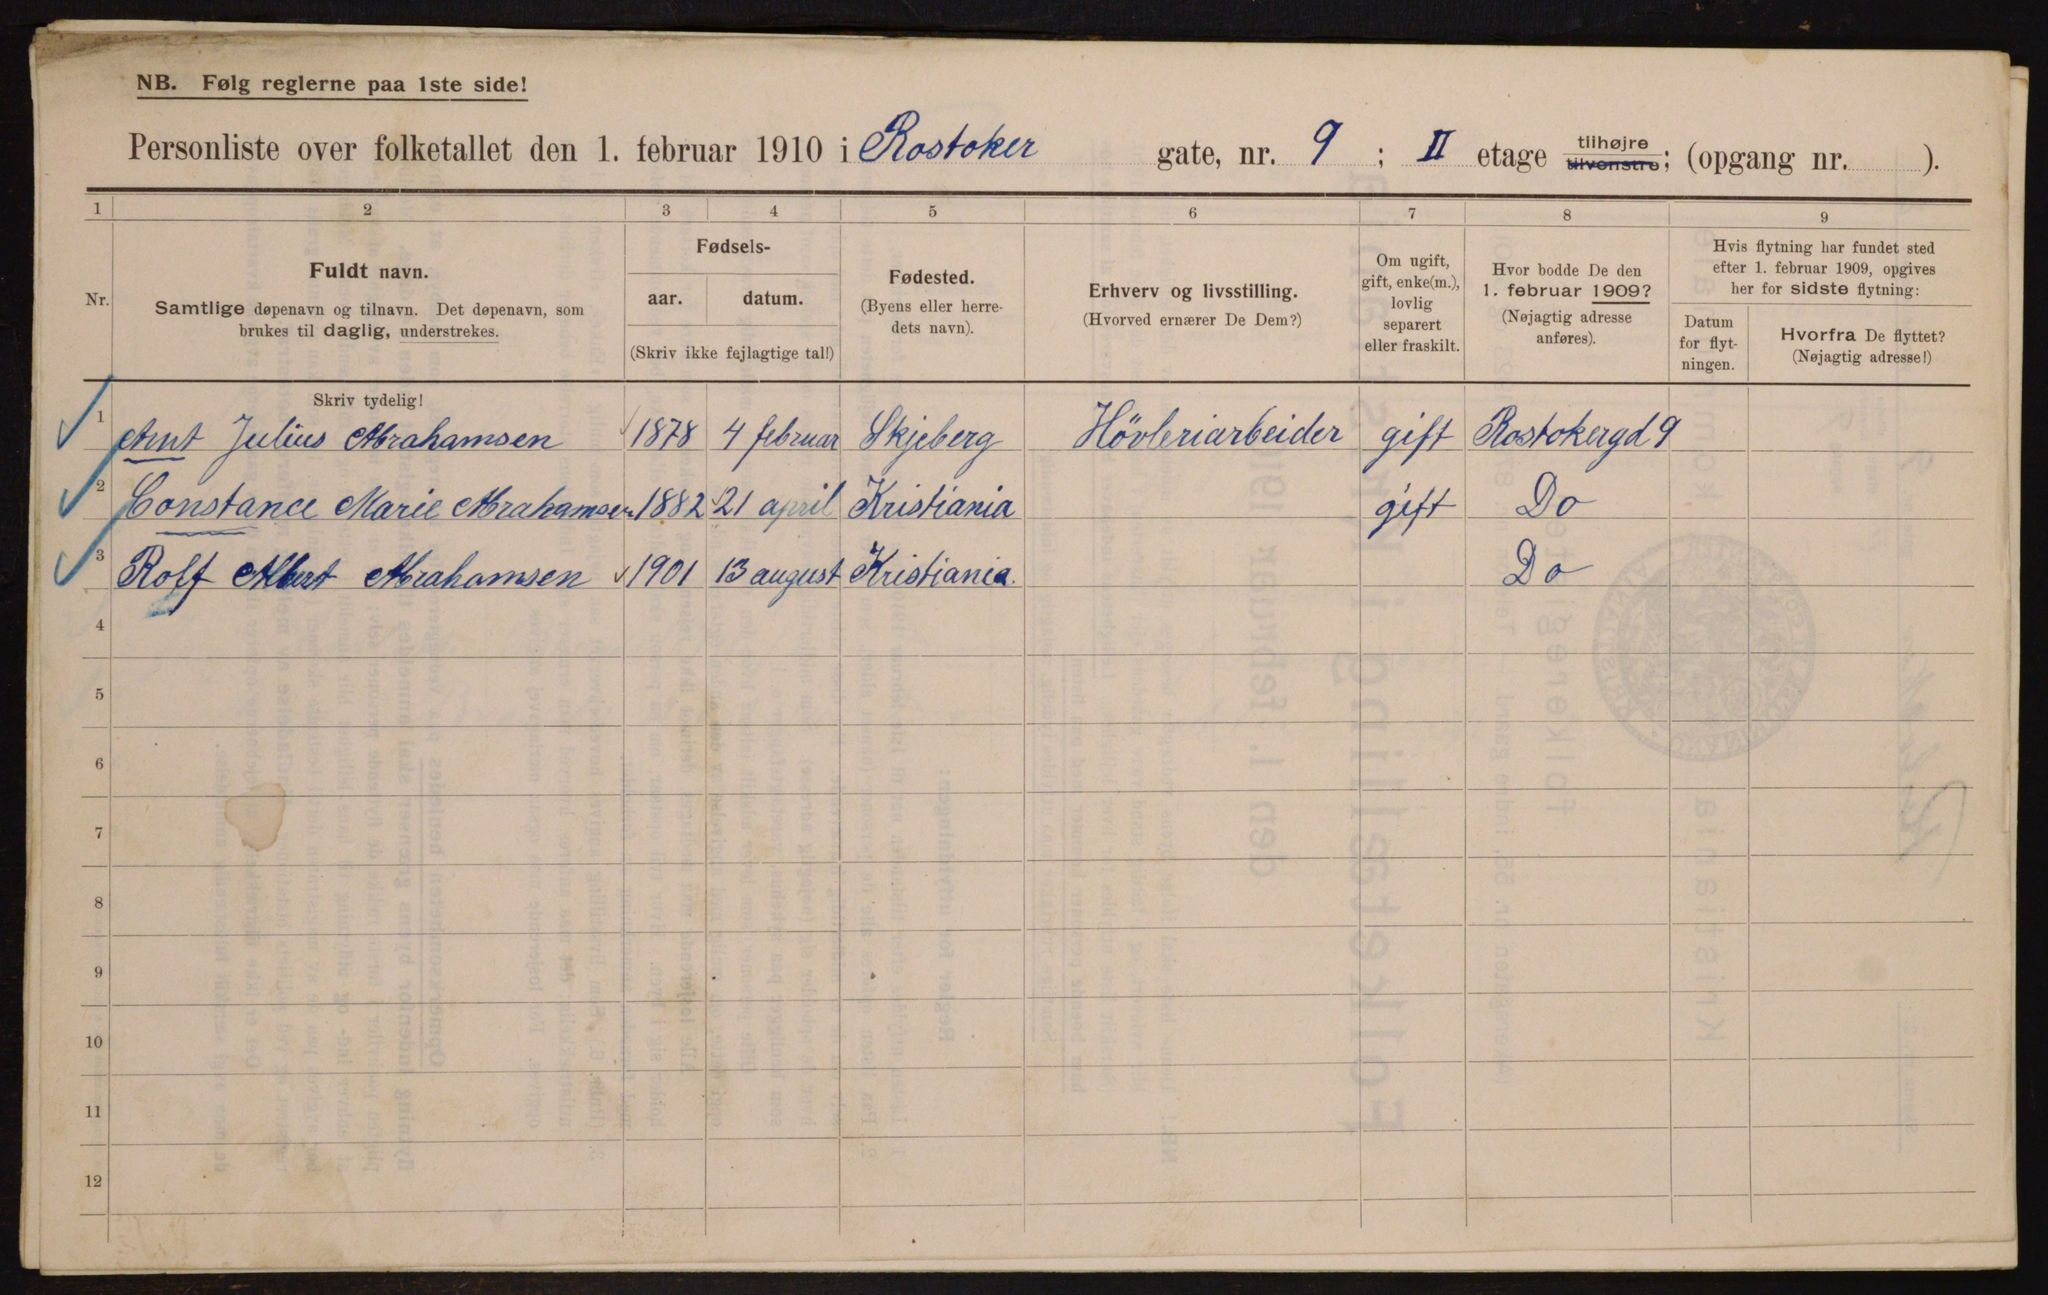 NB. Følg reglerne paa 1ste side!
Personliste over folketallet den 1. februar 1910 i Rostoker gate, nr. 9 ; II etage tilhøjre tilvenstre; (opgang nr. ).
1 2 3 4 5 6 7 8 9
Nr.
Fuldt navn.
Samtlige døpenavn og tilnavn. Det døpenavn, som
brukes til daglig, understrekes.
Fødsels-
aar. datum.
(Skriv ikke fejlagtige tal!)
Fødested.
(Byens eller herre-
dets navn).
Erhverv og livsstilling.
(Hvorved ernærer De Dem?)
Om ugift,
gift, enke(m.),
lovlig
separert
eller fraskilt.
Hvor bodde De den
1. februar 1909?
(Nøjagtig adresse
anføres).
Hvis flytning har fundet sted
efter 1. februar 1909, opgives
her for sidste flytning:
Datum
for flyt-
ningen.
Hvorfra De flyttet?
(Nøjagtig adresse!)
Skriv tydelig!
1 Arnt Julius Abrahamsen 1878 4 februar Skjeberg Hövleriarbeider gift Rostokergd 9
2 Constance Marie Abrahamsen 1882 21 april Kristiania gift Do
3 Rolf Albert Abrahamsen 1901 13 august Kristiania. Do
4
5
6
7
8
9
10
11
12